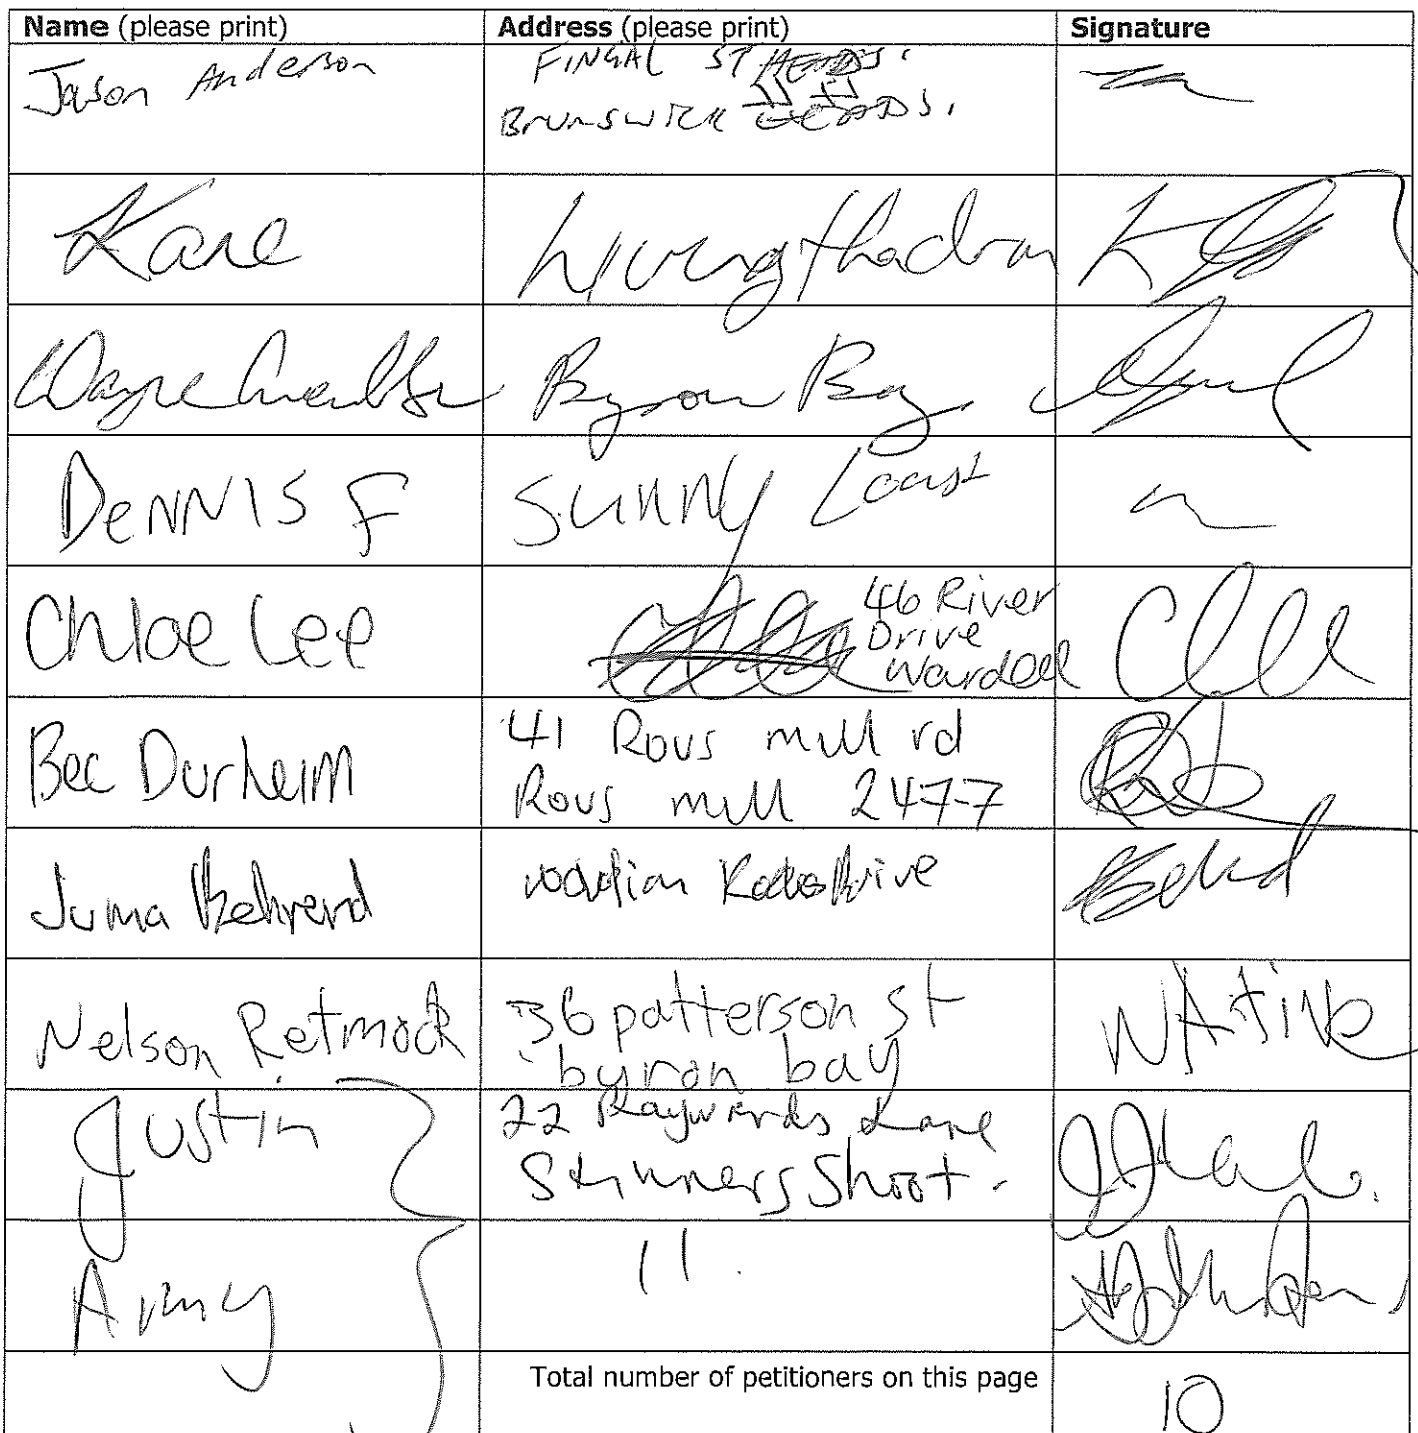 Name (please print) Address (please print) Signature
Jason Anderson FINGAL ST
BRUNSWICK HEADS.
Kane
Wayne Byron Bay
DENNIS F SUNNY Coast
Chloe Lee 46 River
Drive
Wardell
Bec Durheim 41 Rous mill rd
Rous mill 2477
Juma Behrend Drive
Nelson Retmock 36 patterson st NAtive
byron bay
Justin 22 Raywards Lane
Skinners Shoot.
Amy 11.
Total number of petitioners on this page 10